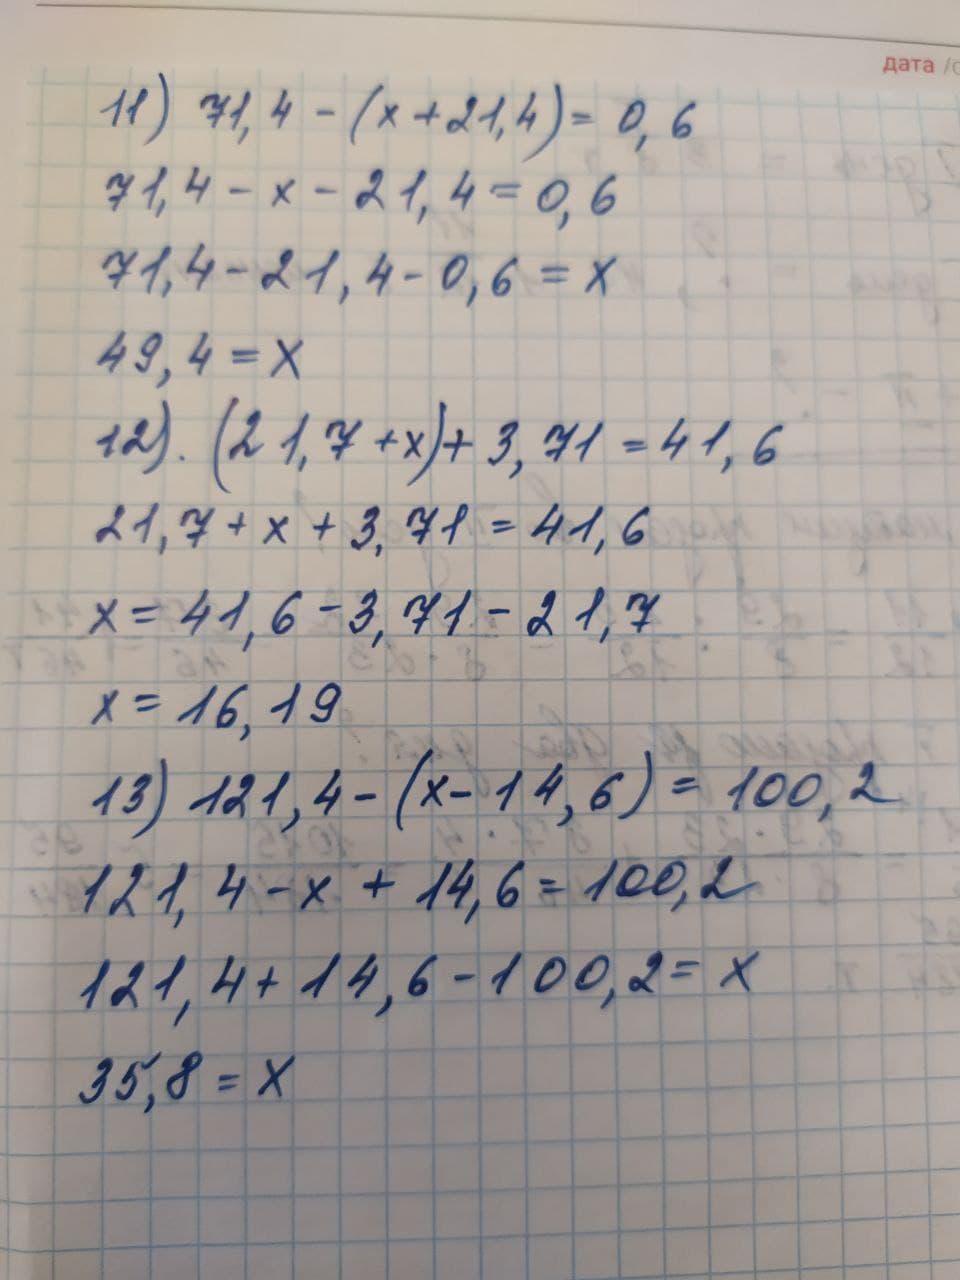 дата
11) 71,4 - (x + 21,4) = 0,6
71,4 - x - 21,4 = 0,6
71,4 - 21,4 - 0,6 = x
49,4 = x
12). (21,7 + x) + 3,71 = 41,6
21,7 + x + 3,71 = 41,6
x = 41,6 - 3,71 - 21,7
x = 16,19
13) 121,4 - (x - 14,6) = 100,2
121,4 - x + 14,6 = 100,2
121,4 + 14,6 - 100,2 = x
35,8 = x